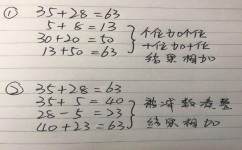 ① 35+28=63
5+8=13
30+20=50
13+50=63
个位加个位
十位加十位
结果相加
② 35+28=63
35+5=40
28-5=23
40+23=63
被加数凑整
结果相加